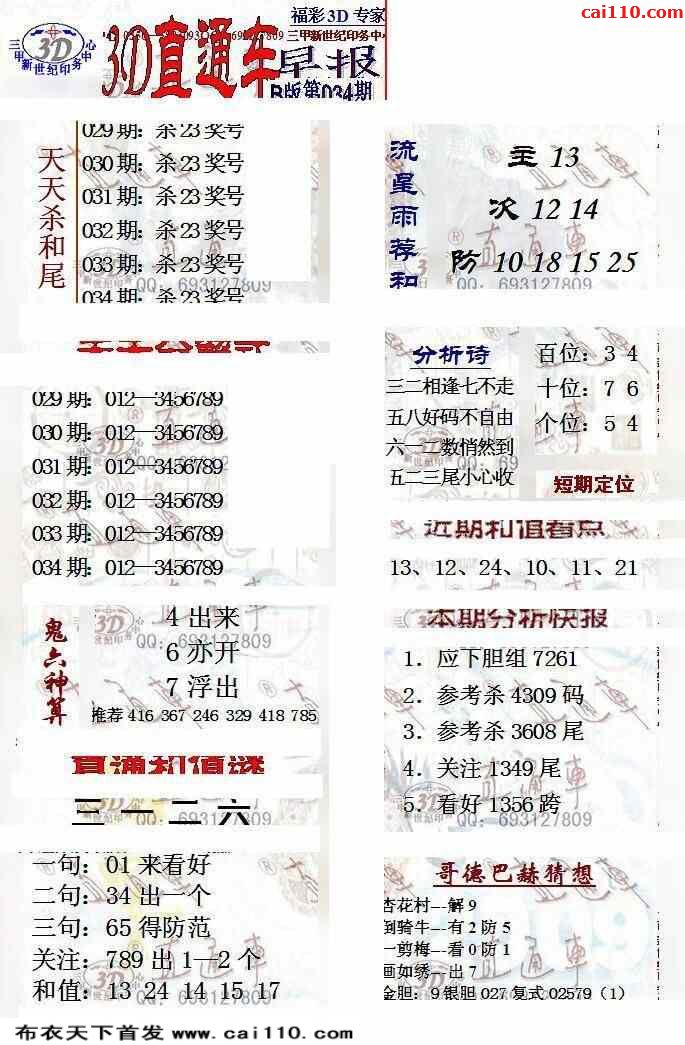 cai110.com
福彩3D专家
三甲新世纪印务中心
3D
3D直通车
早报
B版第034期
天天杀和尾
029期：杀23奖号
030期：杀23奖号
031期：杀23奖号
032期：杀23奖号
033期：杀23奖号
034期：杀23奖号
029期：012—3456789
030期：012—3456789
031期：012—3456789
032期：012—3456789
033期：012—3456789
034期：012—3456789
鬼六神算
4出来
6亦开
7浮出
推荐416 367 246 329 418 785
直通和值谜
三一二六
一句：01来看好
二句：34出一个
三句：65得防范
关注：789出1—2个
和值：13 24 14 15 17
流星雨荐和
主 13
次 12 14
防 10 18 15 25
QQ：693127809
分析诗
三二相逢七不走
五八好码不自由
六一二数悄然到
五二三尾小心收
百位：3 4
十位：7 6
个位：5 4
短期定位
近期和值看点
13、12、24、10、11、21
本期分析快报
1．应下胆组7261
2．参考杀4309码
3．参考杀3608尾
4．关注1349尾
5．看好1356跨
哥德巴赫猜想
杏花村---解9
倒骑牛---有2防5
一剪梅---看0防1
画如绣---出7
金胆：9银胆027复式02579（1）
布衣天下首发 www.cai110.com